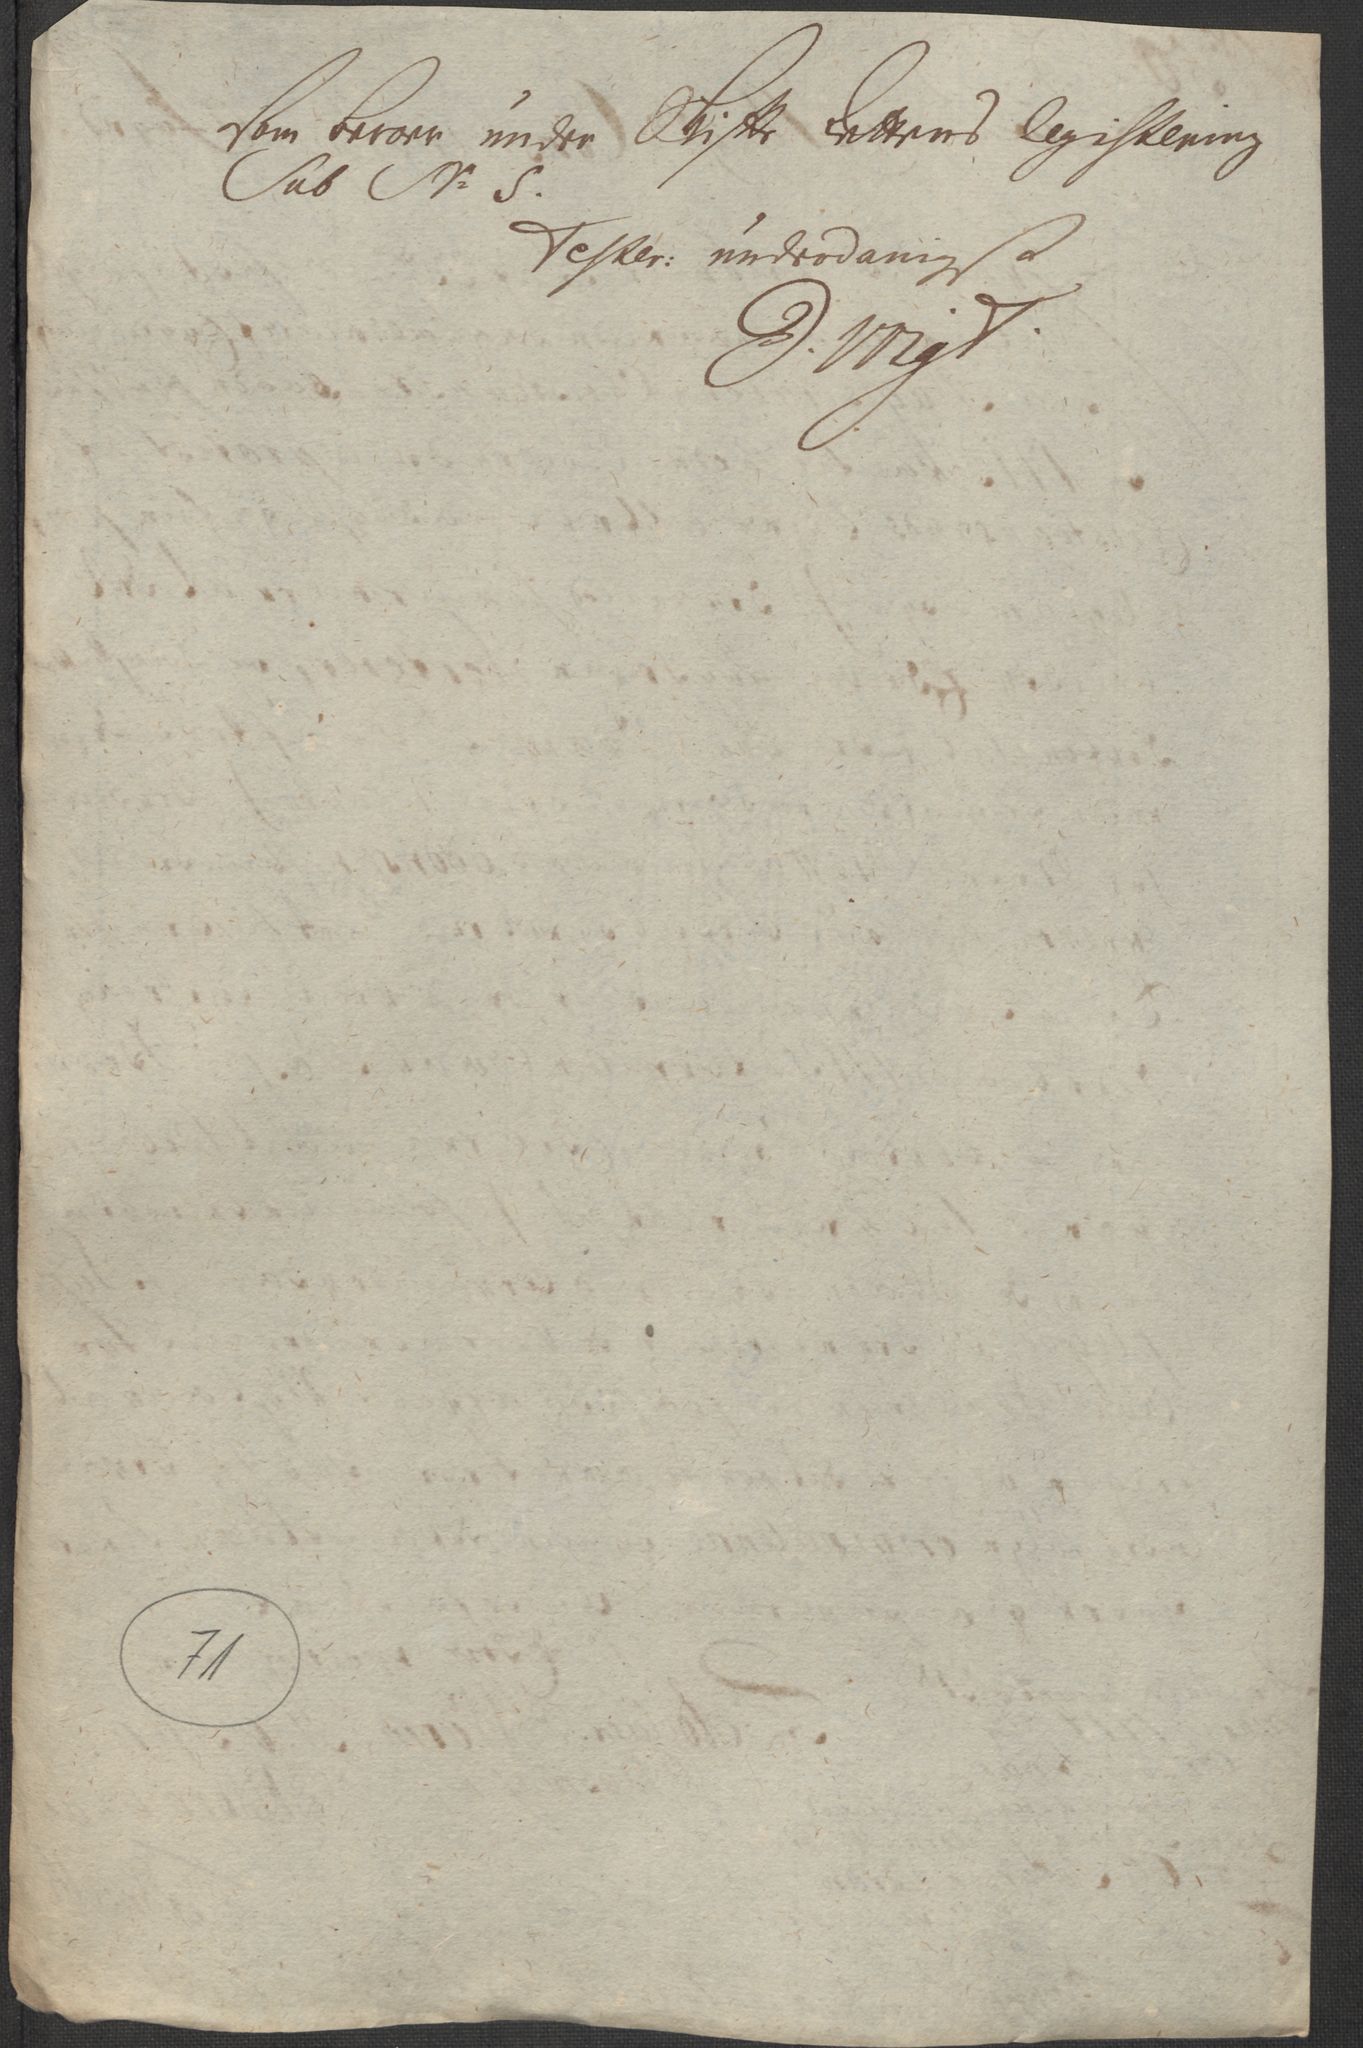 som beroer under Skifte Rettens Registering
Sub No 5.
Tester: underdanigst
D. Voigt.
71